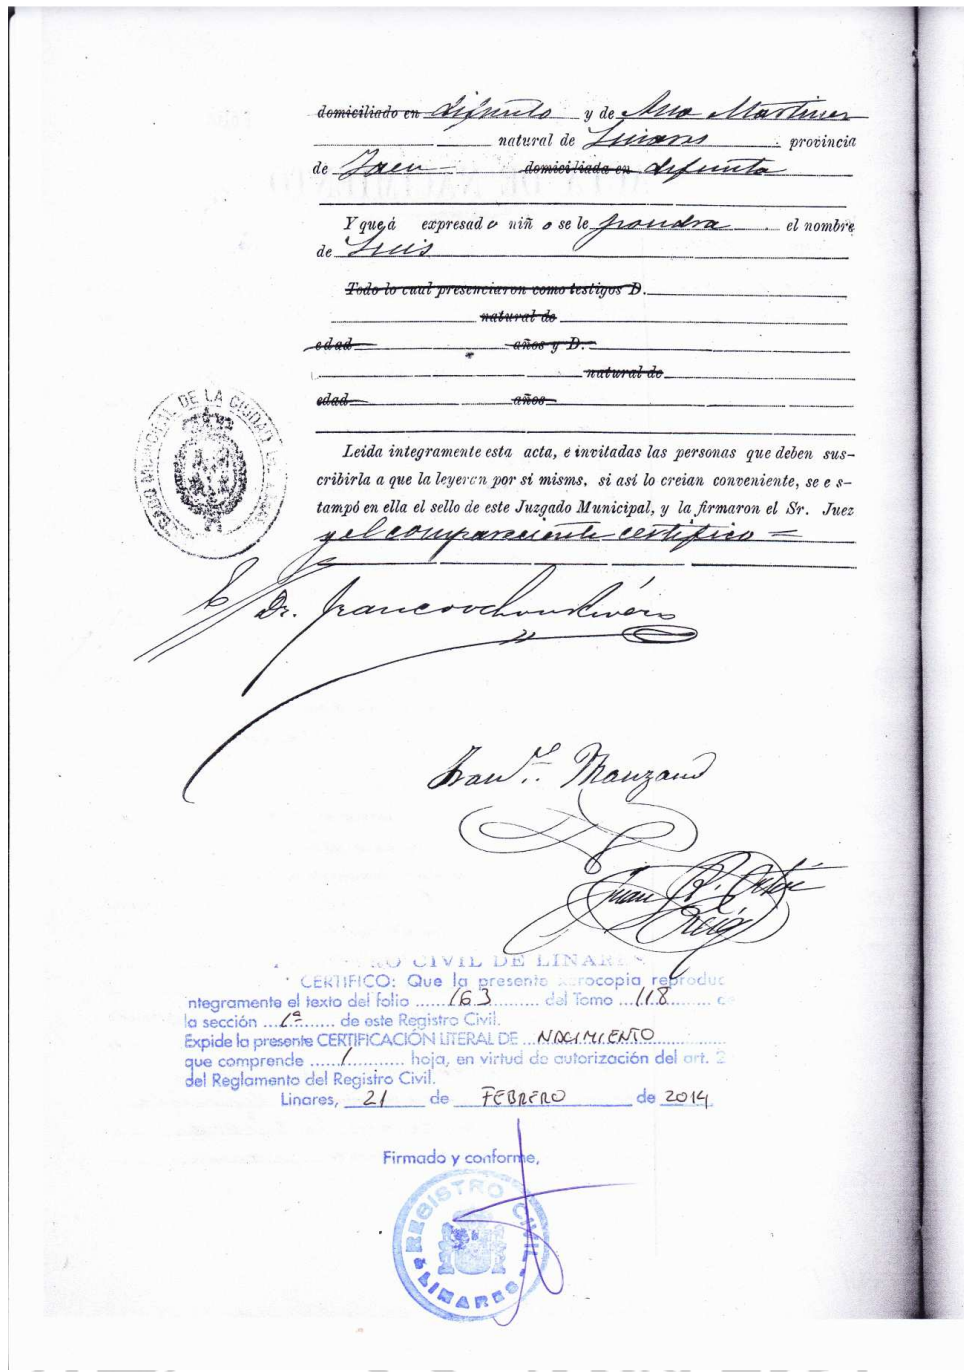 domiciliado en difunto y de Ana Martinez
natural de Linares provincia
de Jaen domiciliada en difunta
Y que á expresado niño se le pondra el nombre
de Luis
Todo lo cual presenciaron como testigos D.
natural de
edad años y D.
natural de
edad años
Leida integramente esta acta, é invitadas las personas que deben sus-
cribirla a que la leyeren por sí misms, si asi lo creian conveniente, se e s-
tampó en ella el sello de este Juzgado Municipal, y la firmaron el Sr. Juez
y el compareciente certifico =
MUNICIPAL DE LA CIUDAD DE
Dr.
Franco. Manzano
Juan
CIVIL DE LINARES
CERTIFICO: Que la presente xerocopia reproduc
ntegramente el texto del folio 163 del Tomo 118 de
la sección 1ª de este Registro Civil.
Expide la presente CERTIFICACIÓN LITERAL DE NACIMIENTO
que comprende 1 hoja, en virtud de autorización del art. 2
del Reglamento del Registro Civil.
Linares, 21 de FEBRERO de 2014
Firmado y conforme,
REGISTRO CIVIL
LINARES